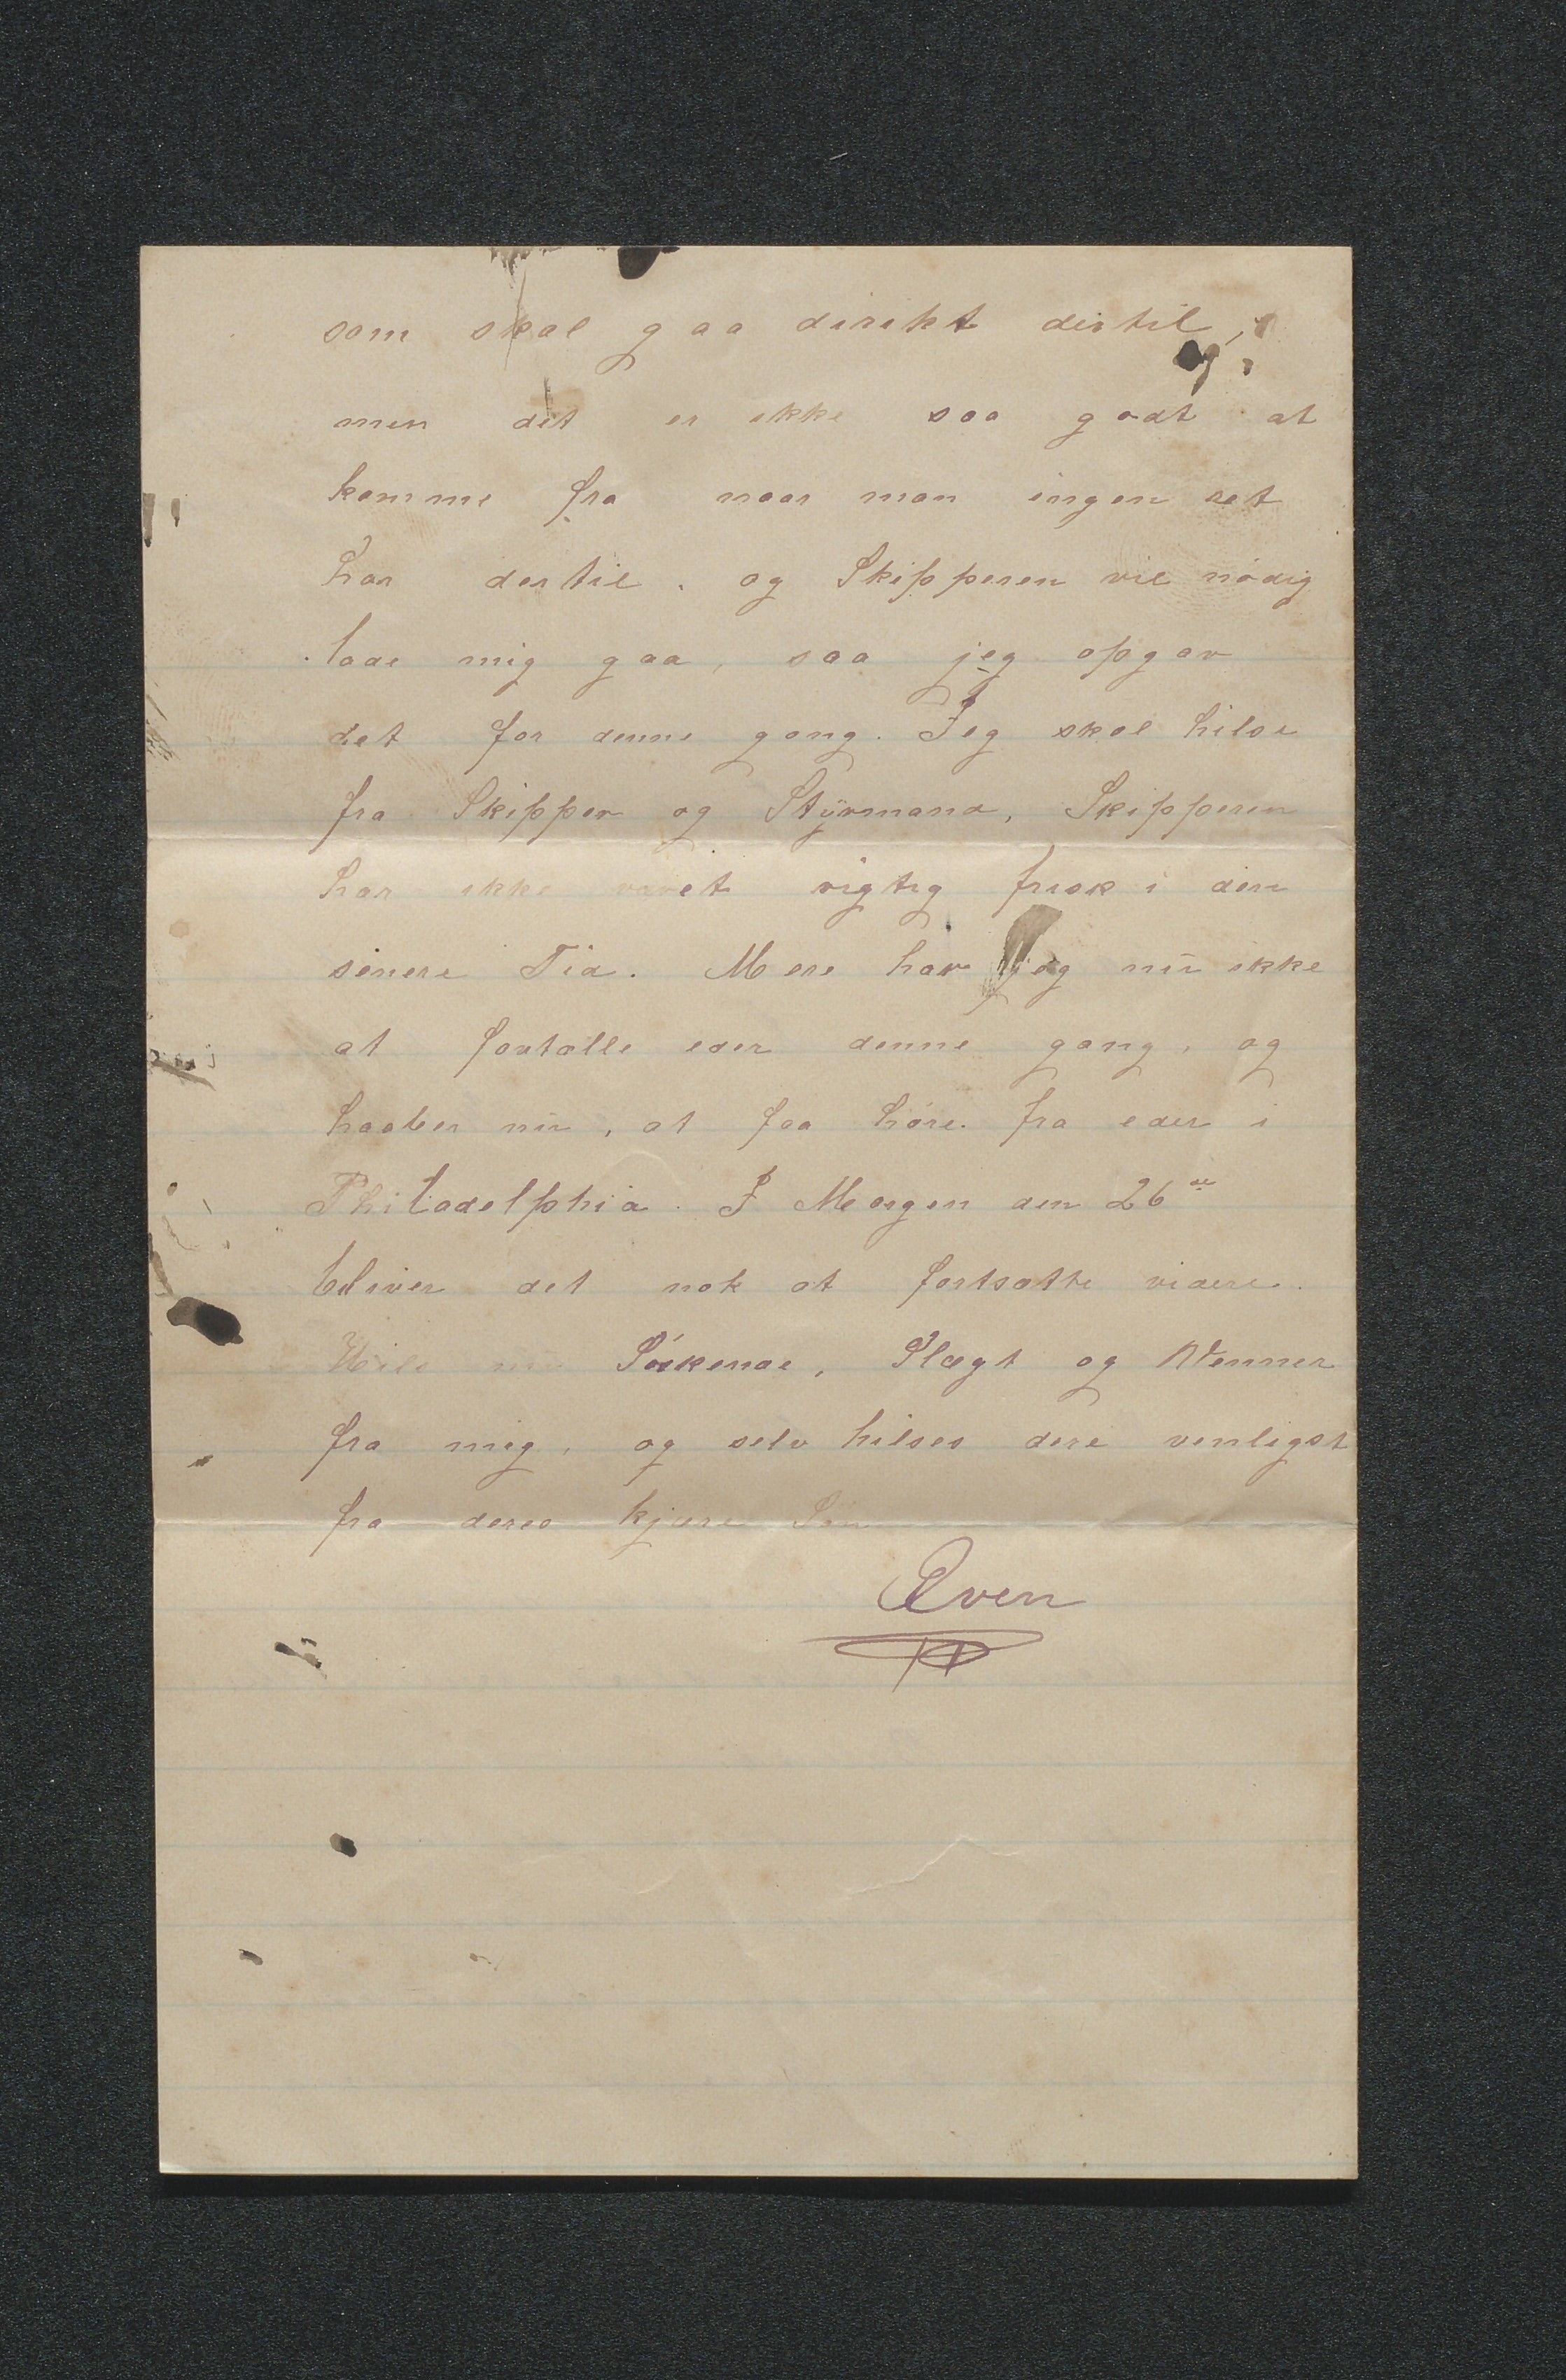 som skal gaa direkt dertil,
men det er ikke saa godt at
komme fra naar man ingen ret
har dertil, og Skipperen vil nódig
lade mig gaa, saa jeg opgav
det for denne gang. Jeg skal hilse
fra Skipper og Styrmand, Skipperen
har ikke været rigtig frisk i den
senere Tid. Mere har jeg nu ikke
at fortælle eder denne gang, og
haaber nu, at faa höre fra eder i
Philadelphia. I Morgen den 26de
bliver det nok at fortsætte videre.
Hils nu Söskende, Slægt og Venner
fra mig, og selv hilses dere venligst
fra deres kjære Sön
Even